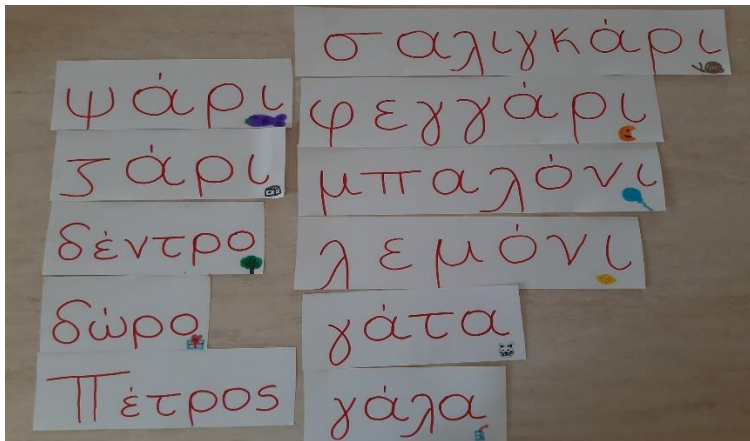 ψάρι
ζάρι
δέντρο
δώρο
Πέτρος
σαλιγκάρι
φεγγάρι
μπαλόνι
λεμόνι
γάτα
γάλα